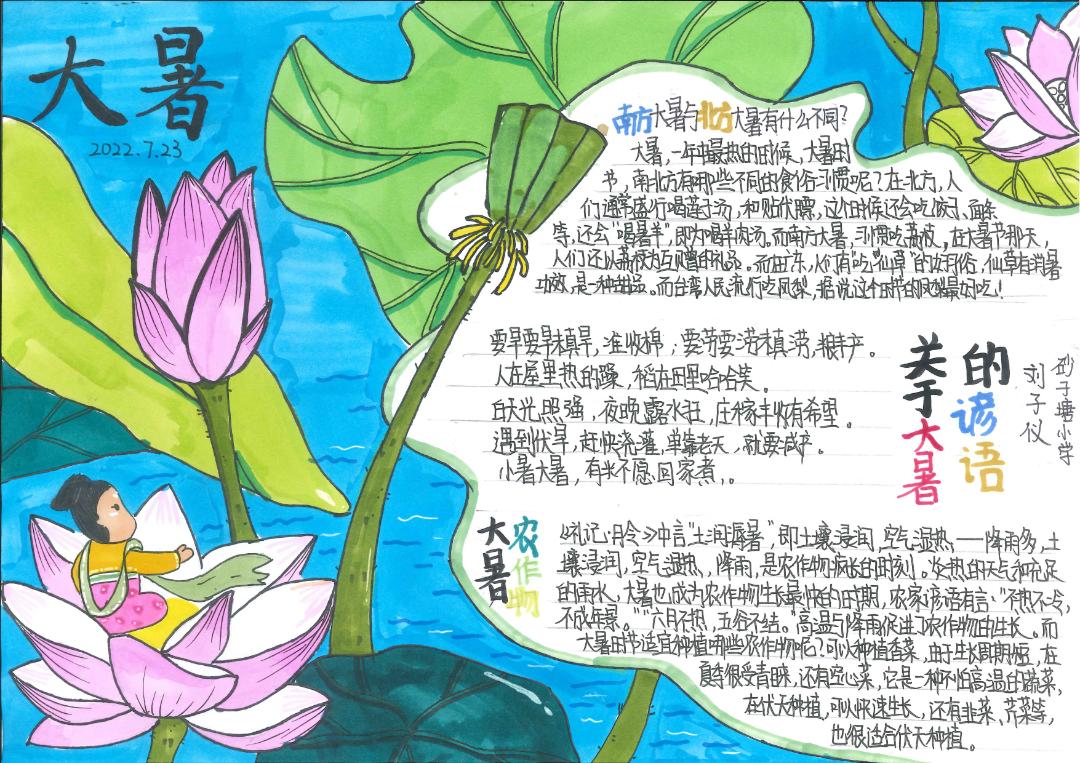 大暑
2022.7.23
南方大暑与北方大暑有什么不同?
大暑,一年中最热的时候,大暑时
节,南北方有哪些不同的食俗习惯呢?在北方,人
们通常盛行喝莲子汤,和贴伏膘,这个时候还会吃饺子、面条
等,还会“喝暑羊”,即为喝羊肉汤。而南方大暑,习惯吃荔枝,在大暑节那天,
人们还以荔枝为互赠的礼品。而广东,人们有“吃仙草”的习俗,仙草有消暑
功效,是一种甜品。而台湾人民流行吃凤梨,据说这个时节的凤梨最好吃!
要旱要旱植旱,准收棉;要涝要涝植涝,粮丰产。
人在屋里热的躁,稻在田里哈哈笑。
白天光照强,夜晚露水旺,庄稼丰收有希望。
遇到伏旱,赶快浇灌,单靠老天,就要减产。
小暑大暑,有米不愿回家煮,。
关于大暑
的谚语
刘子仪
砂子塘小学
大暑
农作物
《礼记·月令》中言“土润溽暑”,即土壤浸润,空气湿热——降雨多,土
壤浸润,空气湿热,降雨,是农作物疯长的时刻。炎热的天气和充足
的雨水,大暑也成为农作物生长最快的时期,农家谚语有言:“不热不冷,
不成年景。”“六月不热,五谷不结。”高温与降雨促进了农作物的生长。而
大暑时节适宜种植哪些农作物呢?可以种植香菜,由于生长周期短,在
夏季很受青睐,还有空心菜,它是一种不怕高温的蔬菜,
在伏天种植,可以快速生长,还有韭菜、芹菜等,
也很适合伏天种植。